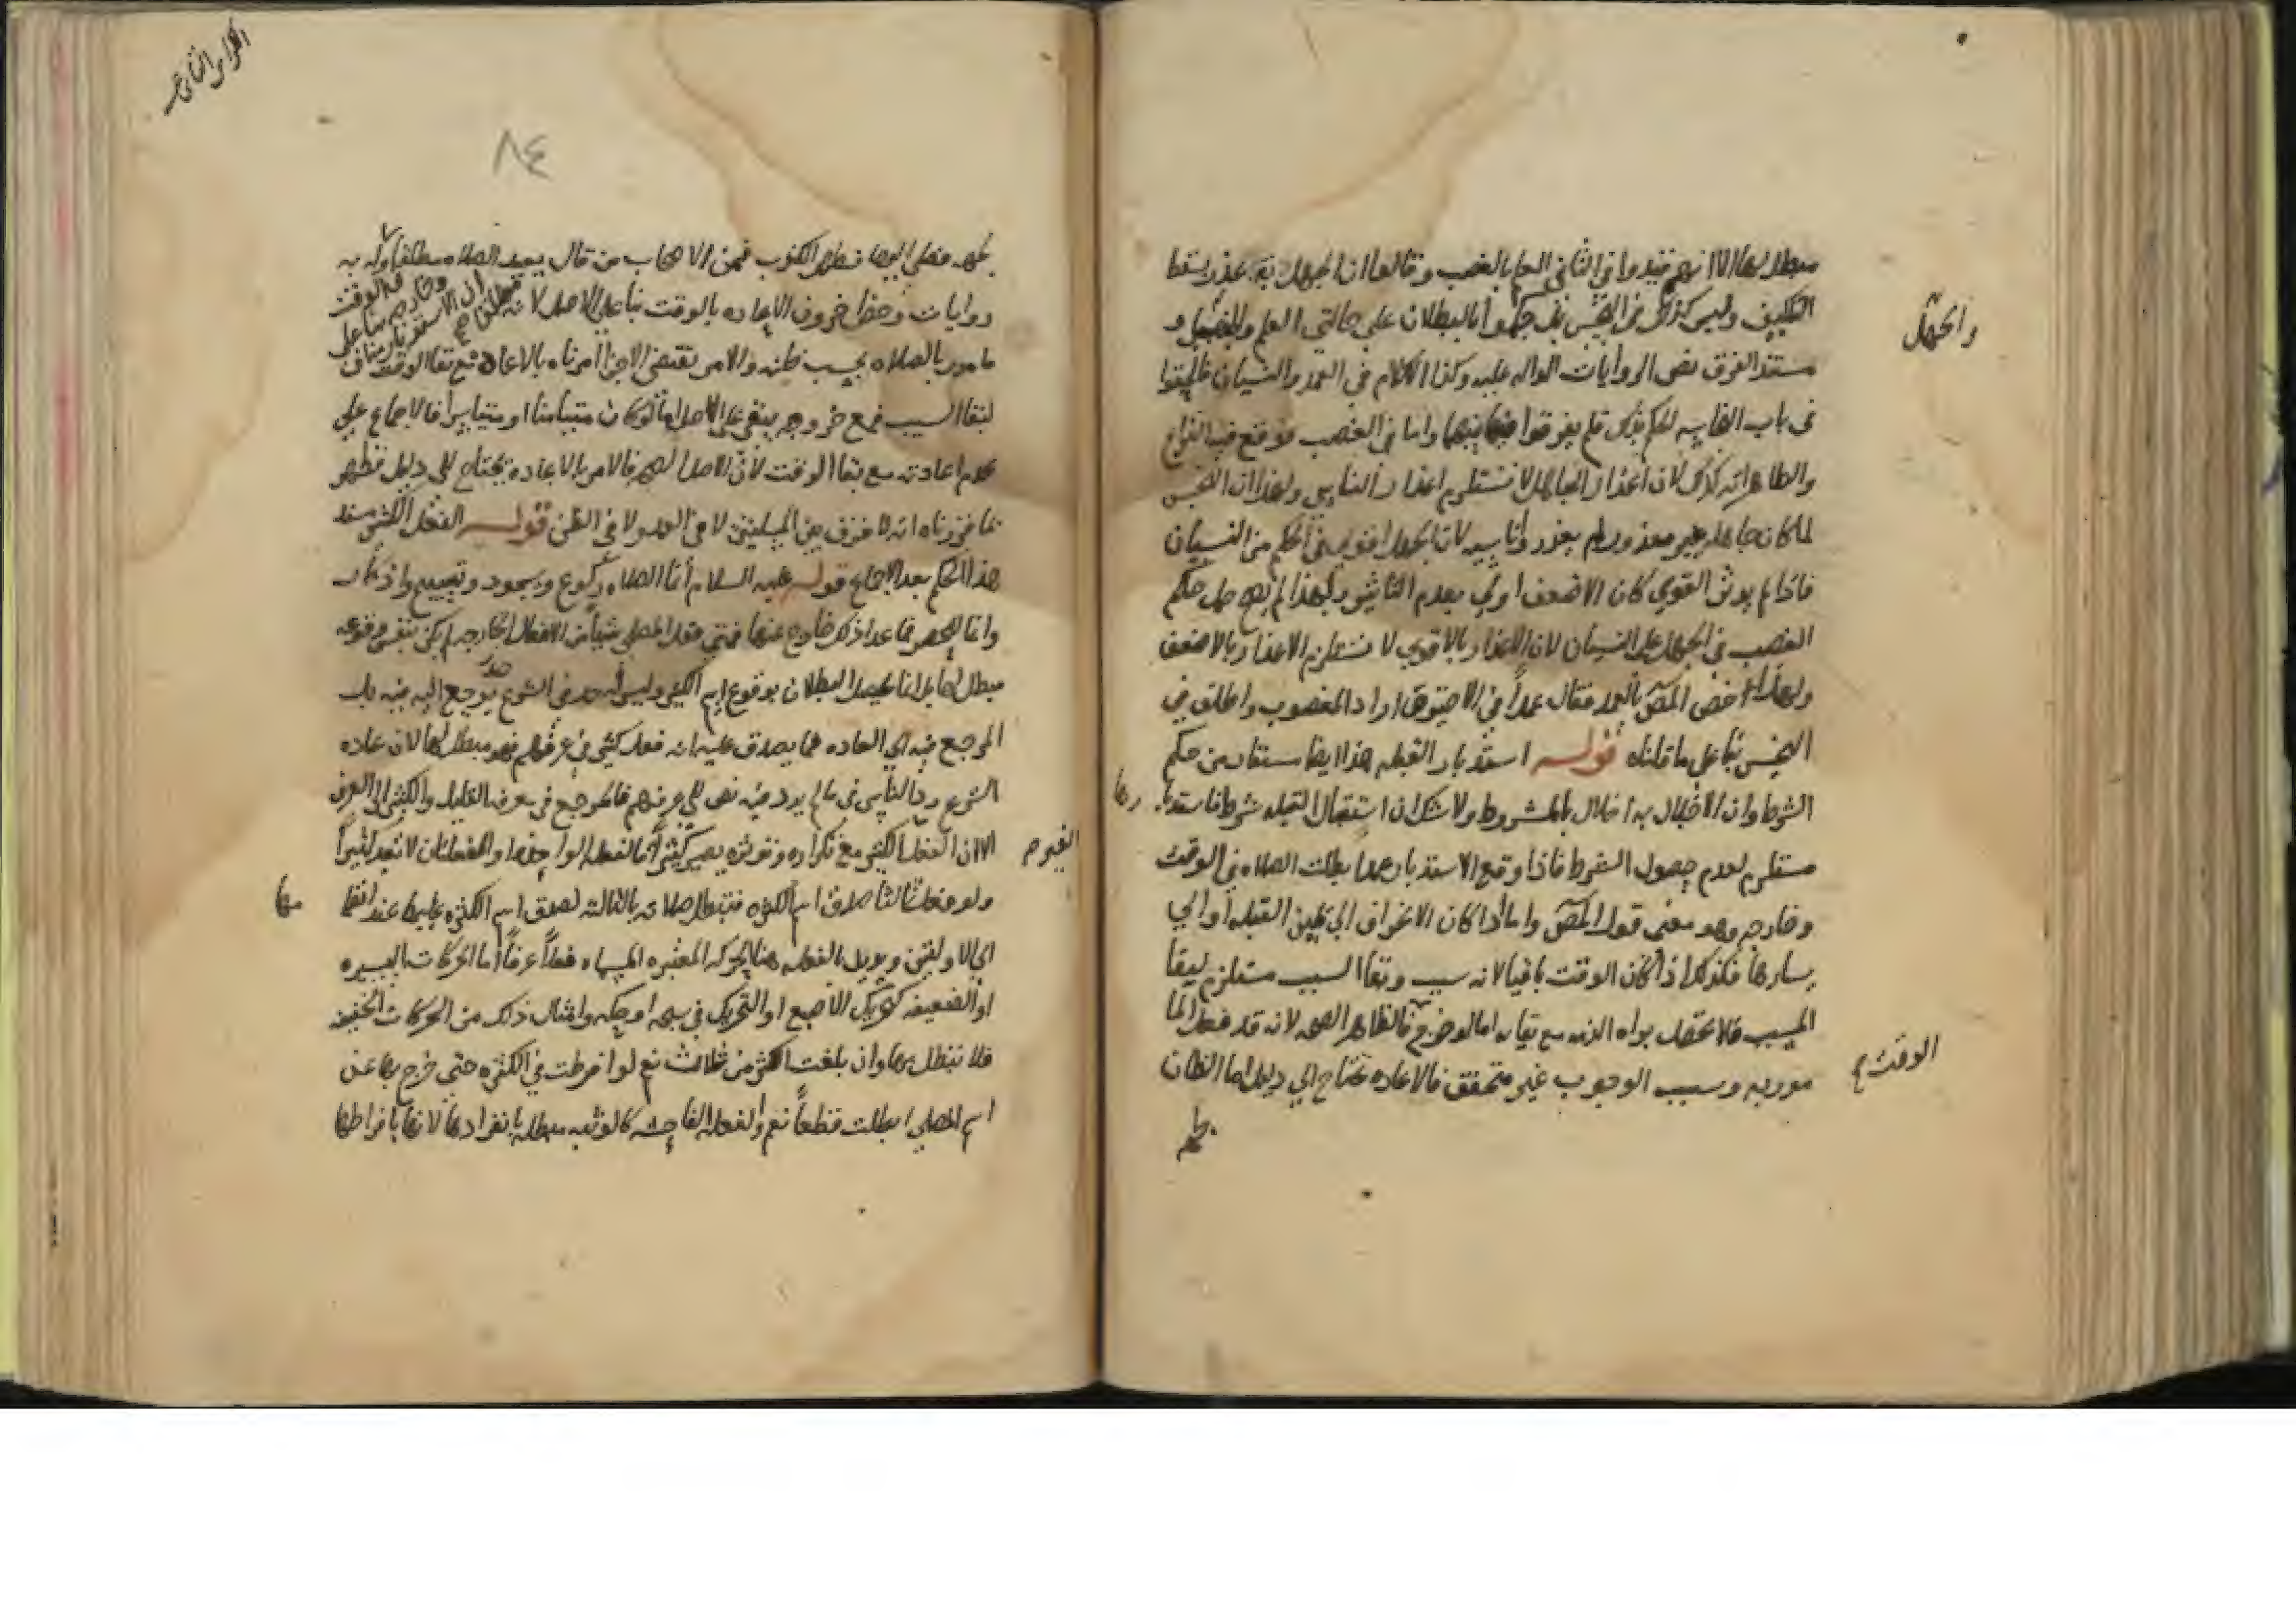 مبطل لها الا انهم قيدوا في الثاني العلم بالغصب وقالوا ان الجهل به عذر يسقط
التكليف وليس كذلك في النجس بل حكموا بالبطلان على حالتي العلم والجهل و
والجهل
مستند الفرق نص الروايات الداله عليه وكذا الكلام في العمد والنسيان
في باب النجاسه للحكم بذلك فلم يفرقوا بينهما واما في الغصب فوقع فيه النزاع
والظاهر انه كذلك لان اعذار الجاهل لا تستلزم اعذار الناسي ولهذا ان النجس
لما كان جاهله غير معذور لم يعذر ناسيه لان الجهل اقوى في الحكم من النسيان
فاذا لم يوثر القوي كان الاضعف اولي بعدم التاثير ولهذا لم يصح حمل حكم
الغصب في الجهل على النسيان لان الاعذار بالاقوي لا تستلزم الاعذار بالاضعف
ولهذا خص المص بالعمد فقال عمداً في الاخير وهذا اراد المغصوب واطلق في
النجس بناً على ما قلناه قوله استدبار القبله هذا ايضا مستفاد من حكم
الشرط وان الاخلال به اخلال بالمشروط ولا شك ان استقبال القبله شرط فاستدبا
رها
مستلزم لعدم حصول الشرط فاذا وقع الاستدبار عمدا بطلت الصلاه في الوقت
وخارجه وهو معنى قول المص واما اذا كان الانحراف الي يمين القبله او الي
يسارها فكذلك اذا كان الوقت باقيا لانه سبب وبقاً السبب مستلزم لبقاً
المسبب فلا تحصل براه الذمه مع بقايه اما لو خرج فالظاهر الصحه لانه قد فعل الما
الوقت
مور به وسبب الوجوب غير متحقق فالاعاده تحتاج الي دليل اما الظان
٨٤
فصلي اليها فظهر الكذب فمن الاصحاب من قال يعيد الصلاه مطلقا وله به
روايات وخص اخرون الاعاده بالوقت بناً على الاصل لانه
مامور بالصلاه بحسب ظنه والامر يقتضي الاجزا امرناه بالاعاده مع بقا الوقت
لبقا السبب فمع خروجه يبقى على الاصل اما لو كان متيامنا او متياسراً فالاجماع على
عدم اعادته مع بقا الوقت لان الاصل الصحه فالامر بالاعاده يحتاج الى دليل فظهر
بما قررناه انه لا فرق بين المسلتين لا في العمد ولا في الظن قوله الفعل الكثير مستند
هذا الحكم بعد الاجماع قوله عليه السلام انما الصلاه ركوع وسجود وتسبيح واذكار
وانما للحصر فما عدا ذكر خارج عنها فمتي فعل المصلي شياً من الافعال الخارجه لم يكن بنفس وقوعه
مبطل لها بل انما يحصل البطلان بوقوع اسم الكثير وليس له حد في الشرع يرجع اليه فيه بل
المرجع فيه الي العاده فما يصدق عليه انه فعل كثير في عرفهم فهو مبطل لها لان عاده
الشرع رد الناس في ما لم يرد فيه نص الى عرفهم فالمرجع في معرفه القليل والكثير الى العرف
الا ان الفعل الكثير مع تكراره وتواتره يصير كثيراً اما الفعله الواحده والفعلتان لا تعد كثيراً
ولو فعل ثالثا صدق اسم الكثره فتبطل صلاته بالثالثه لصدق اسم الكثره عليها عند انضما
مها
الي الاولتين ويريد بالفعله هنا الحركه المعتبره المسماه فعلاً عرفاً اما الحركات اليسيره
او الضعيفه كتحريك الاصبع او التحريك في سبحه او حكه وامثال ذلك من الحركات الخفيفه
فلا تبطل بها وان بلغت اكثر من ثلاث نعم لو افرطت في الكثره حتى خرج بها عن
اسم المصلي ابطلت قطعاً نعم والفعله الفاحشه كالوثبه مبطله بانفرادها لانها بافراطها